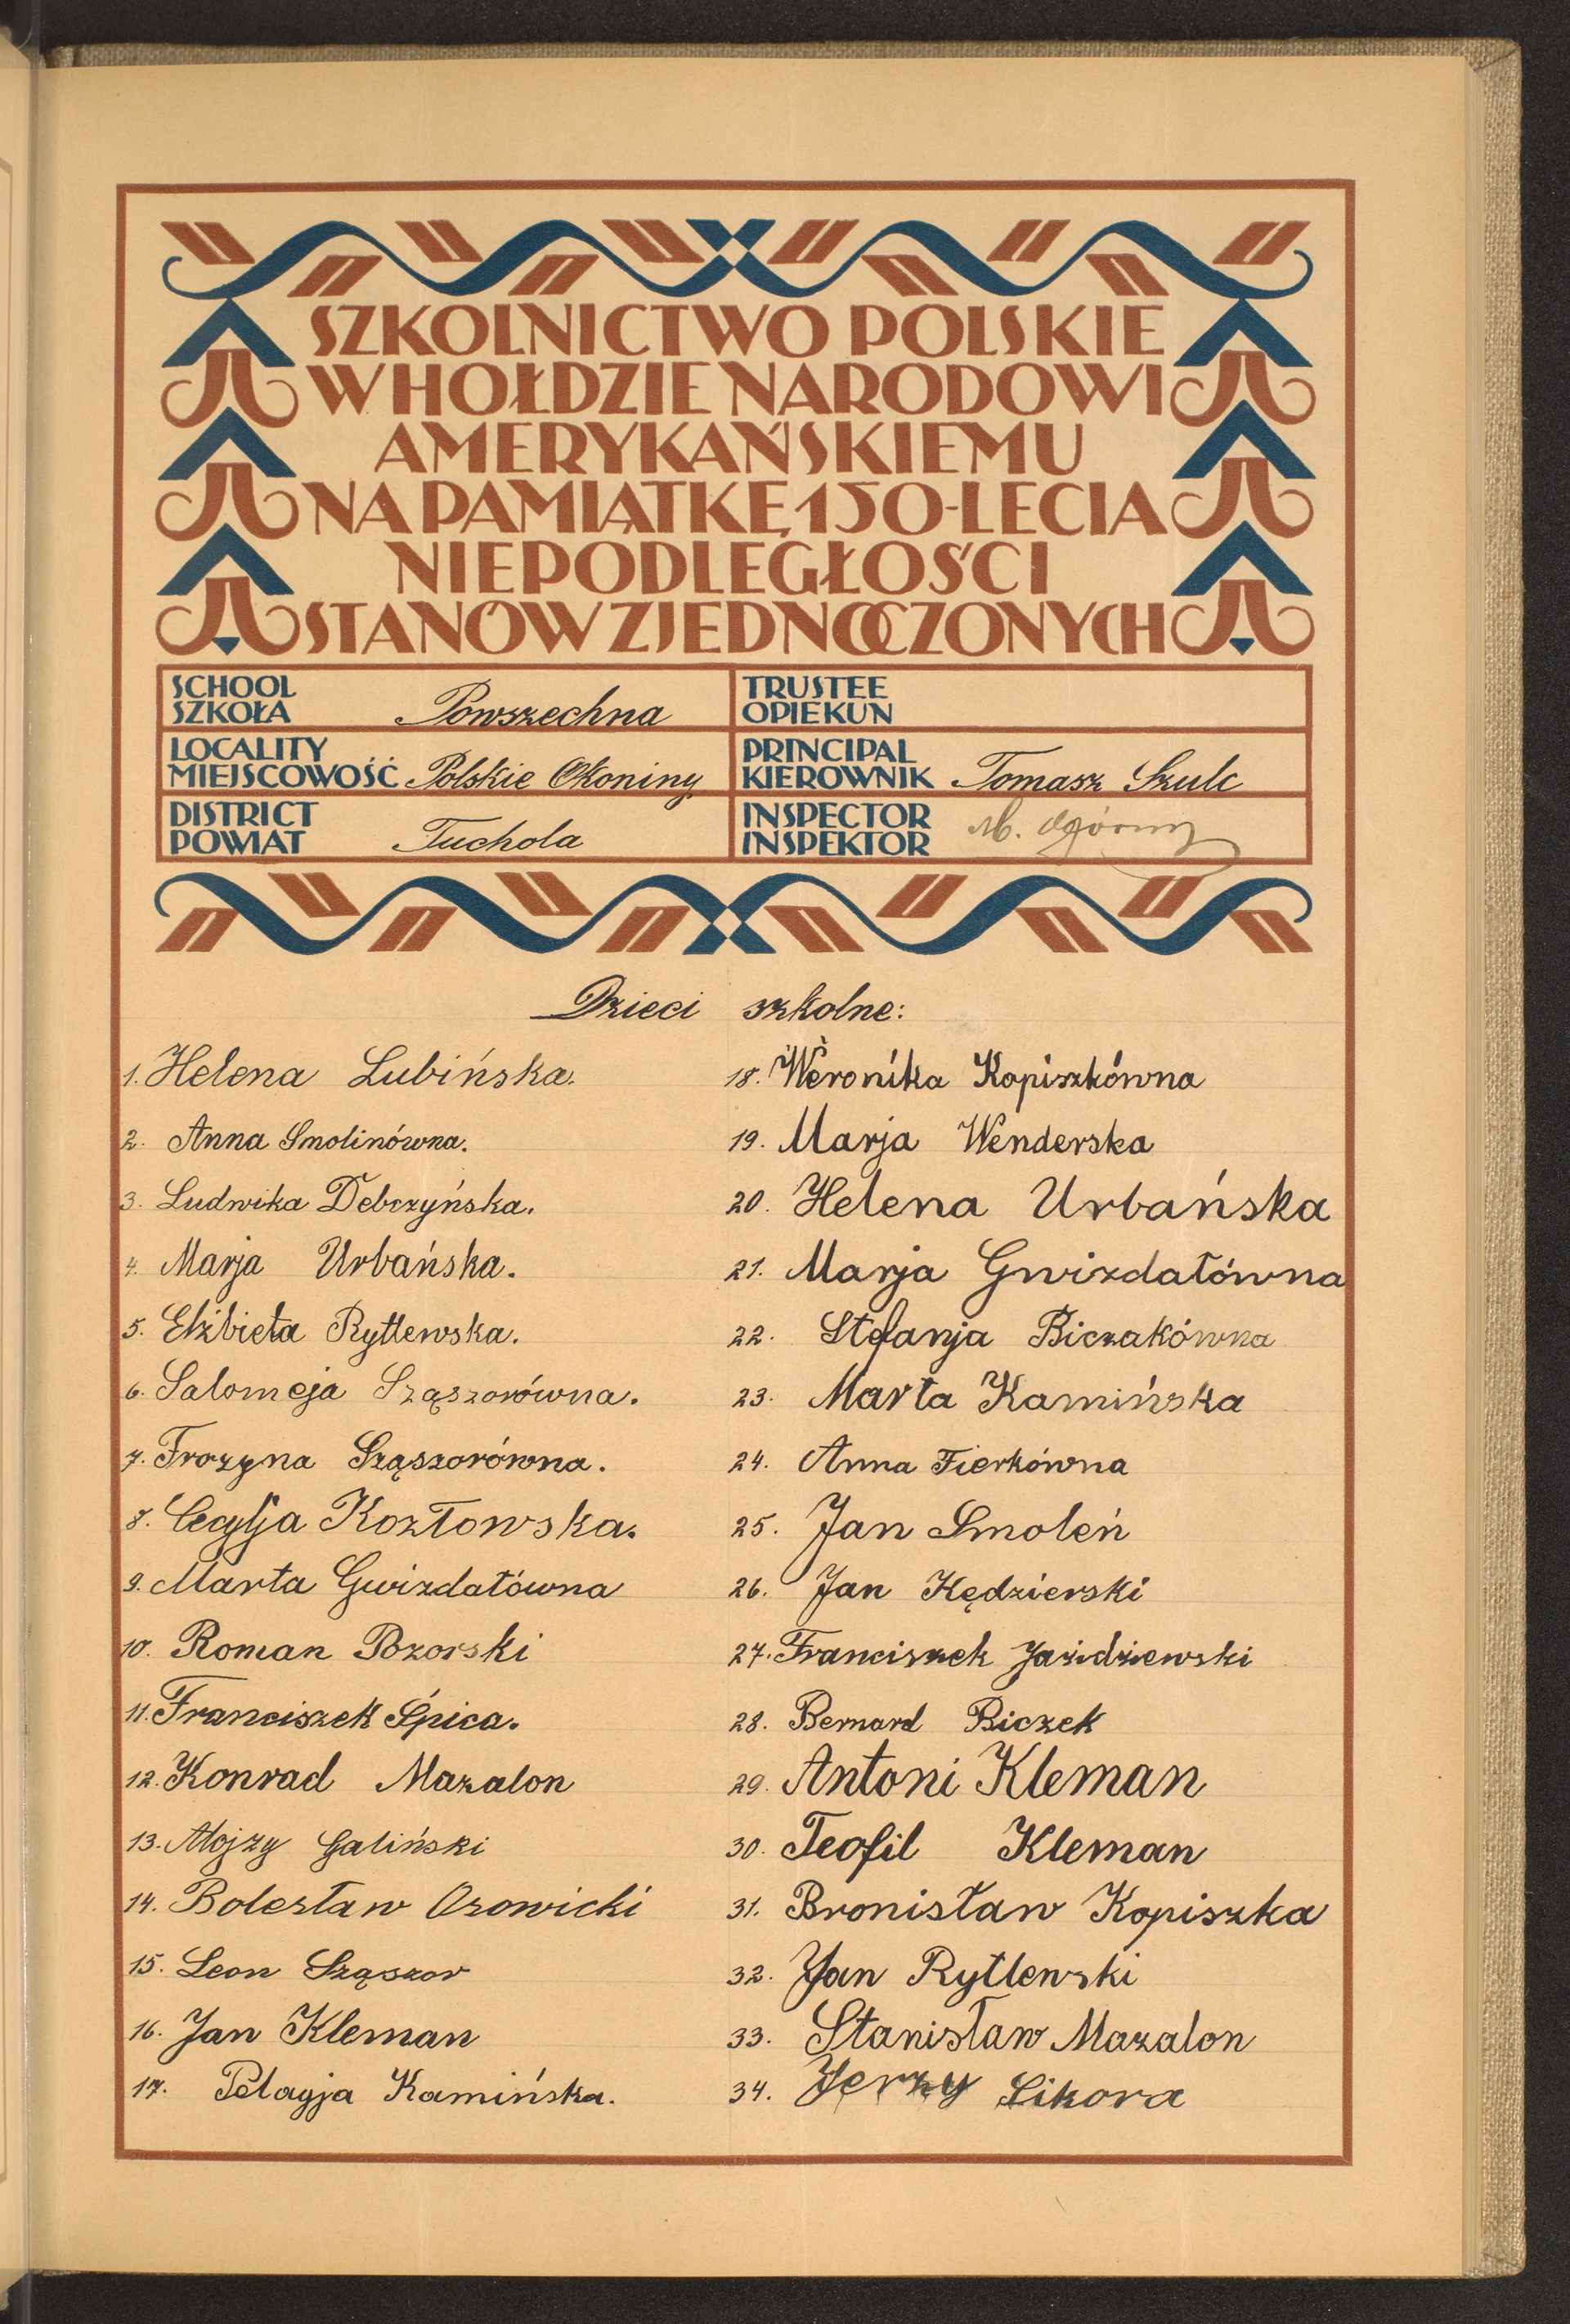 SZKOLNICTWO POLSKIE
W HOŁDZIE NARODOWI
AMERYKAŃSKIEMU
NA PAMIĄTKĘ 150-LECIA
NIEPODLEGŁOŚCI
STANÓW ZJEDNOCZONYCH
SCHOOL
SZKOŁA Powszechna
TRUSTEE
OPIEKUN
LOCALITY
MIEJSCOWOŚĆ Polskie Okoniny
PRINCIPAL
KIEROWNIK Tomasz Szulc
DISTRICT
POWIAT Tuchola
INSPECTOR
INSPEKTOR M.
Dzieci szkolne:
1. Helena Lubińska.
2. Anna Smolinówna.
3. Ludwika Debczyńska.
4. Marja Urbańska.
5. Elżbieta Rytlewska.
6. Salomeja Sząszorówna.
7. Frozyna Sząszorówna.
8. Cecylja Kozłowska.
9. Marta Gwizdałówna
10. Roman Pozorski
11. Franciszek Śpica.
12. Konrad Mazalon
13. Alojzy Galiński
14. Bolesław Osowicki
15. Leon Sząszor
16. Jan Kleman
17. Pelagja Kamińska.
18. Weronika Kopiszkówna
19. Marja Wenderska
20. Helena Urbańska
21. Marja Gwizdałówna
22. Stefanja Biczakówna
23. Marta Kamińska
24. Anna Fierkówna
25. Jan Smoleń
26. Jan Kędzierski
27. Franciszek Jażdżiewski
28. Bernard Biczek
29. Antoni Kleman
30. Teofil Kleman
31. Bronisław Kopiszka
32. Jan Rytlewski
33. Stanisław Mazalon
34. Jerzy Sikora